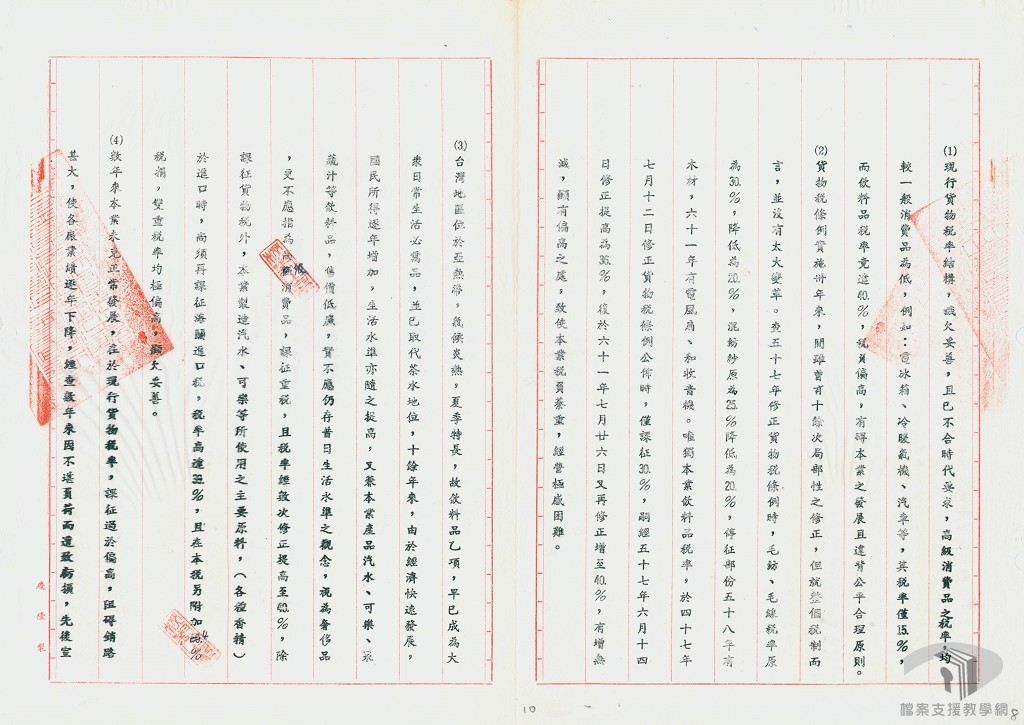 (1)現行貨物稅率結構，欠妥善，且已不合時代要求，高級消費品之稅率，均
較一般消費品為低，例如：電冰箱、冷暖氣機、汽車等，其稅率僅15.%，
而飲料品稅率竟達40.%，稅負偏高，有碍本業之發展且違背公平合理原則。
(2)貨物稅條例實施卅年來，間雖曾有十餘次局部性之修正，但就整個稅制而
言，並沒有太大變革。查五十七年修正貨物稅條例時，毛紡、毛線稅率原
為30.%，降低為20.%，混紡紗原為25.%降低為20.%，停征部份五十八年有
木材，六十一年有電風扇、和收音機。唯獨本業飲料品稅率，於四十七年
七月十二日修正貨物稅條例公佈時，僅課征30.%，嗣經五十七年六月十四
日修正提高為36.%，復於六十一年七月廿六日又再修正增至40.%，有增無
減，顯有偏高之處，致使本業稅負綦重，經營極感困難。
(3)台灣地區位於亞熱帶，氣候炎熱，夏季特長，故飲料品乙項，早已成為大
眾日常生活必需品，並已取代茶水地位，十餘年來，由於經濟快速發展，
國民所得逐年增加，生活水準亦隨之提高，又蓁本業產品汽水、可樂、菓
蔬汁等飲料品，售價低廉，實不應仍存昔日生活水準之觀念，視為奢侈品
，更不應指為消費品，課征重稅，且稅率經數次修正提高至40.%，除
課征貨物稅外，本業製造汽水、可樂等所使用之主要原料，（各種香精）
於進口時，尚須再課征海關進口稅，稅率高達39.%，且在本稅另附加4%
稅捐，雙重稅率均極偏高，顯欠妥善。
(4)數年來本業未克正常發展，在於現行貨物稅率，課征過於偏高，阻碍銷路
甚大，使各廠業績逐年下降，經查數年來因不堪負荷而遭致虧損，先後宣
慶隆製
10
8
檔案支援教學網